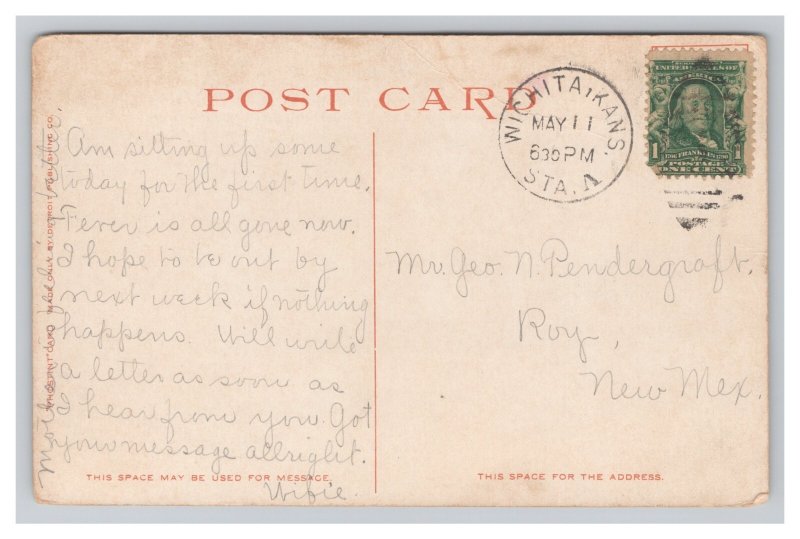 POST CARD
WICHITA, KANS.
MAY 11
630 PM
STA. A
UNITED STATES OF
AMERICA
1 FRANKLIN 1
POSTAGE
ONE CENT
Am sitting up some
today for the first time.
Fever is all gone now.
I hope to be out by
next week if nothing
happens. Will write
a letter as soon as
I hear from you. Got
your message allright.
Wifie.
Mr. Geo. N. Pendergraft.
Roy,
New Mex.
THIS SPACE MAY BE USED FOR MESSAGE.
THIS SPACE FOR THE ADDRESS.
"PHOSTINT" CARD MADE ONLY BY DETROIT PUBLISHING CO.